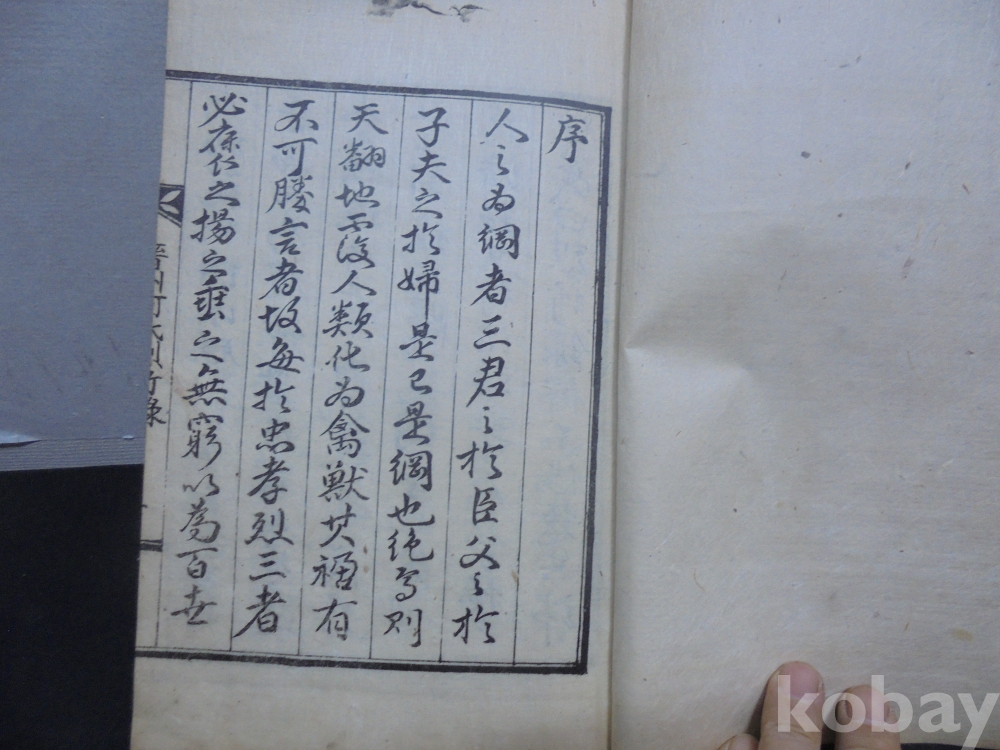 序
人之為綱者三君之於臣父之於
子夫之於婦是已是綱也絶焉則
天翻地覆人類化為禽獸其禍有
不可勝言者故每於忠孝烈三者
必褒之揚之垂之無窮以為百世
晋州河氏烈行錄
kobay